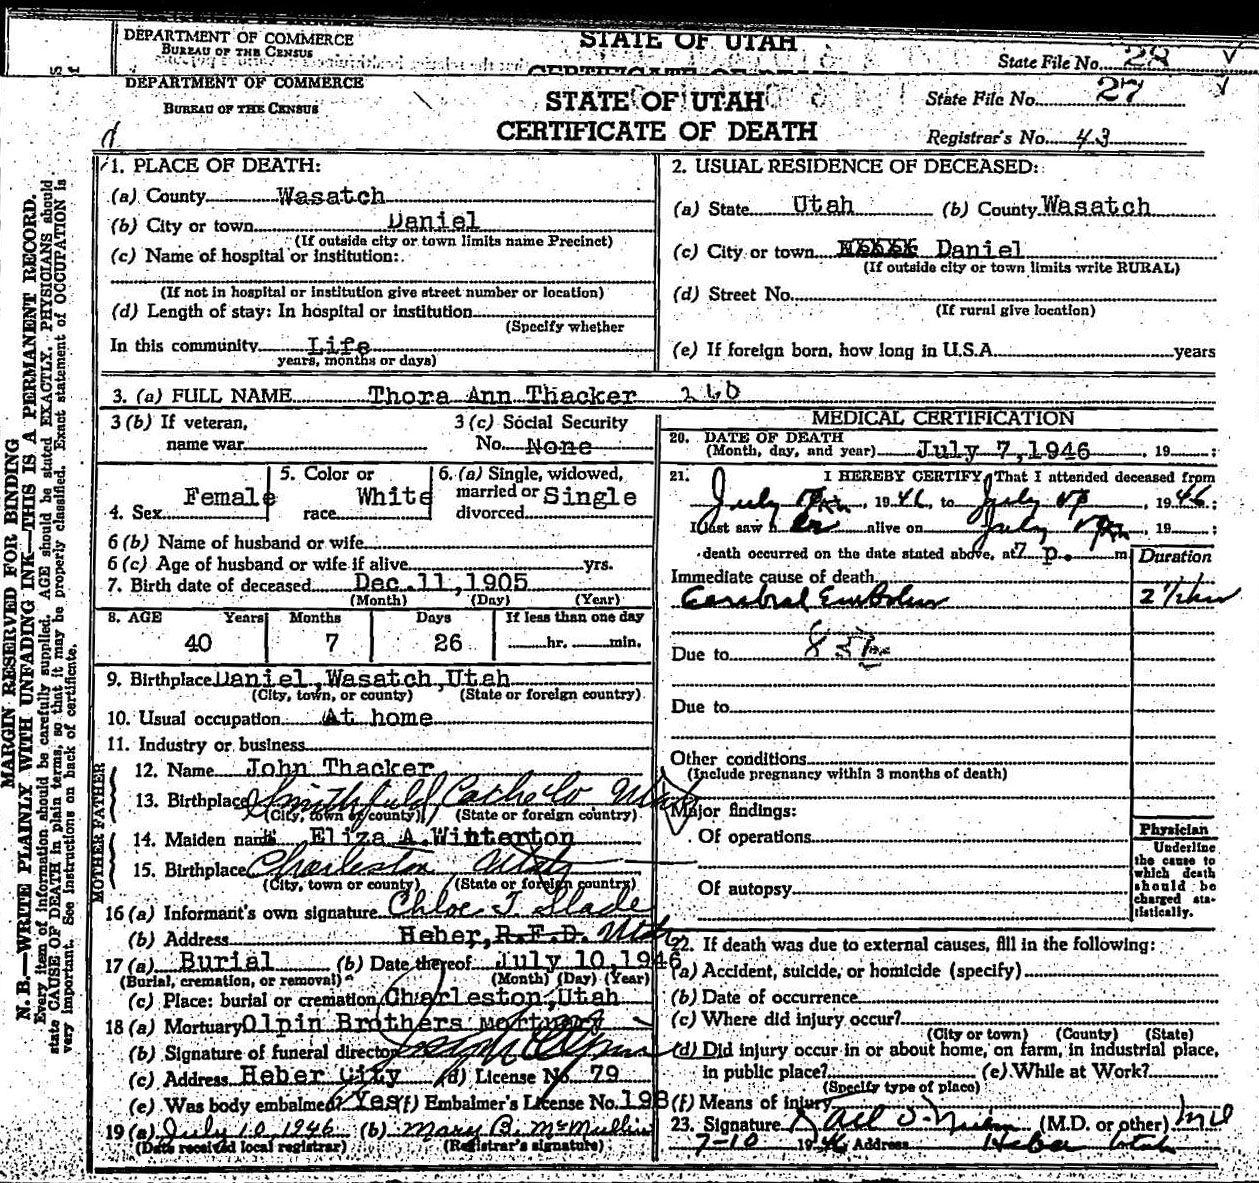 DEPARTMENT OF COMMERCE
BUREAU OF THE CENSUS
STATE OF UTAH
CERTIFICATE OF DEATH
State File No. 28
DEPARTMENT OF COMMERCE
BUREAU OF THE CENSUS
STATE OF UTAH
CERTIFICATE OF DEATH
State File No. 27
Registrar's No. 43
MARGIN RESERVED FOR BINDING
N. B.—WRITE PLAINLY WITH UNFADING INK—THIS IS A PERMANENT RECORD.
Every item of information should be carefully supplied. AGE should be stated EXACTLY. PHYSICIANS should
state CAUSE OF DEATH in plain terms, so that it may be properly classified. Exact statement of OCCUPATION is
very important. See instructions on back of certificate.
1. PLACE OF DEATH:
(a) County Wasatch
(b) City or town Daniel
(If outside city or town limits name Precinct)
(c) Name of hospital or institution:
(If not in hospital or institution give street number or location)
(d) Length of stay: In hospital or institution
(Specify whether
In this community Life
years, months or days)
2. USUAL RESIDENCE OF DECEASED:
(a) State Utah (b) County Wasatch
(c) City or town Daniel
(If outside city or town limits write RURAL)
(d) Street No.
(If rural give location)
(e) If foreign born, how long in U.S.A. years
3. (a) FULL NAME Thora Ann Thacker 260
3 (b) If veteran,
name war
3 (c) Social Security
No. None
4. Sex Female
5. Color or
race White
6. (a) Single, widowed,
married or
divorced Single
6 (b) Name of husband or wife
6 (c) Age of husband or wife if alive yrs.
7. Birth date of deceased Dec. 11, 1905
(Month) (Day) (Year)
8. AGE Years Months Days If less than one day
40 7 26 hr. min.
9. Birthplace Daniel, Wasatch, Utah
(City, town, or county) (State or foreign country)
10. Usual occupation At home
11. Industry or business
FATHER
12. Name John Thacker
13. Birthplace Smithfield, Cache Co Utah
(City, town or county) (State or foreign country)
MOTHER
14. Maiden name Eliza A. Winterton
15. Birthplace Charleston Utah
(City, town or county) (State or foreign country)
16 (a) Informant's own signature Chloe T. Slade
(b) Address Heber, R.F.D. Utah
17 (a) Burial (b) Date thereof July 10, 1946
(Burial, cremation, or removal) (Month) (Day) (Year)
(c) Place: burial or cremation Charleston, Utah
18 (a) Mortuary Olpin Brothers Mortuary
(b) Signature of funeral director
(c) Address Heber City (d) License No. 79
(e) Was body embalmed? Yes (f) Embalmer's License No. 198
19 (a) July 10, 1946 (b) Mary B. McMullin
(Date received local registrar) (Registrar's signature)
MEDICAL CERTIFICATION
20. DATE OF DEATH
(Month, day, and year) July 7, 1946 , 19 ;
21. I HEREBY CERTIFY, That I attended deceased from
July , 1946, to July , 1946;
I last saw her alive on July , 19 ;
death occurred on the date stated above, at 7 p. m
Duration
Immediate cause of death
Cerebral Embolus
Due to
Due to
Other conditions
(Include pregnancy within 3 months of death)
Major findings:
Of operations
Of autopsy
Physician
Underline
the cause to
which death
should be
charged sta-
tistically.
22. If death was due to external causes, fill in the following:
(a) Accident, suicide, or homicide (specify)
(b) Date of occurrence
(c) Where did injury occur?
(City or town) (County) (State)
(d) Did injury occur in or about home, on farm, in industrial place,
in public place? (e) While at Work?
(Specify type of place)
(f) Means of injury
23. Signature (M.D. or other) MD
7-10 1946 Address Heber Utah